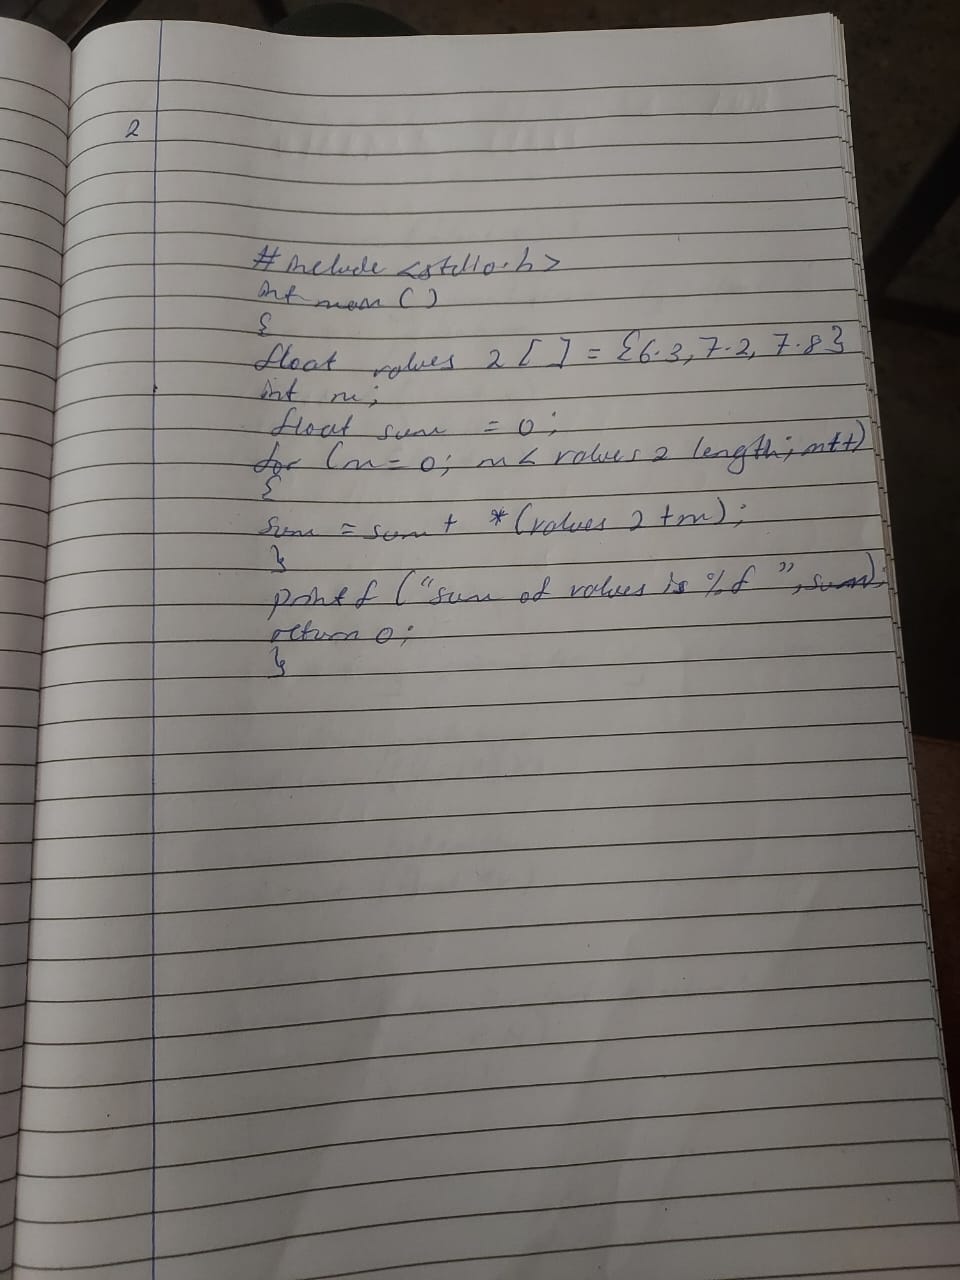 2
# include <stdio.h>
int main ( )
{
float values 2 [ ] = {6.3, 7.2, 7.8}
int m;
float sum = 0;
for (m = 0; m < values 2 length; m++)
{
sum = sum + *(values 2 + m);
}
printf ("sum of values is %f ", sum);
return 0;
}